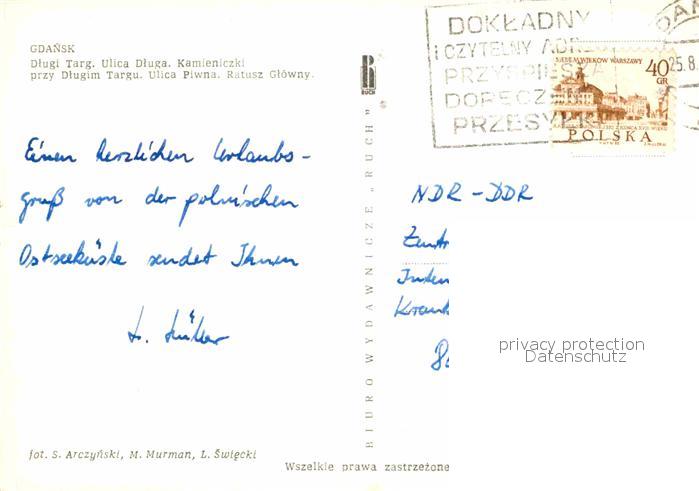 GDAŃSK
Długi Targ. Ulica Długa. Kamieniczki
przy Długim Targu. Ulica Piwna. Ratusz Główny.
Einen herzlichen Urlaubs-
gruß von der polnischen
Ostseeküste sendet Ihnen
fot. S. Arczyński, M. Murman, L. Święcki
RUCH
BIURO WYDAWNICZE „RUCH"
Wszelkie prawa zastrzeżone
DOKŁADNY
I CZYTELNY
DORĘCZE
PRZESYŁK
25.8.
SIEDEM WIEKÓW WARSZAWY
40
GR
POLSKA
NDR - DDR
Zentr
Inten
Krank
privacy protection
Datenschutz